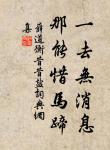 一去無消息
那能惜馬蹄
薛道衡昔昔鹽詞典網